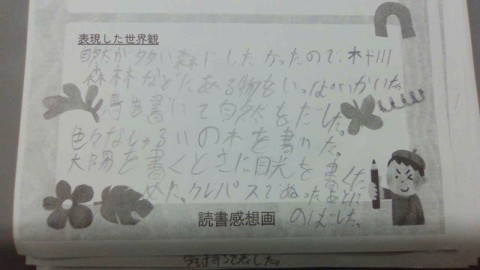 表現した世界観
自然が多い森にしたかったので、木や川
森林などにある物をいっぱいかいた。
鳥も書いて自然をだした。
色々なしゅるいの木を書いた。
太陽を書くときに日光を書くた
めた。クレパスでぬったあとに
のばした。
読書感想画